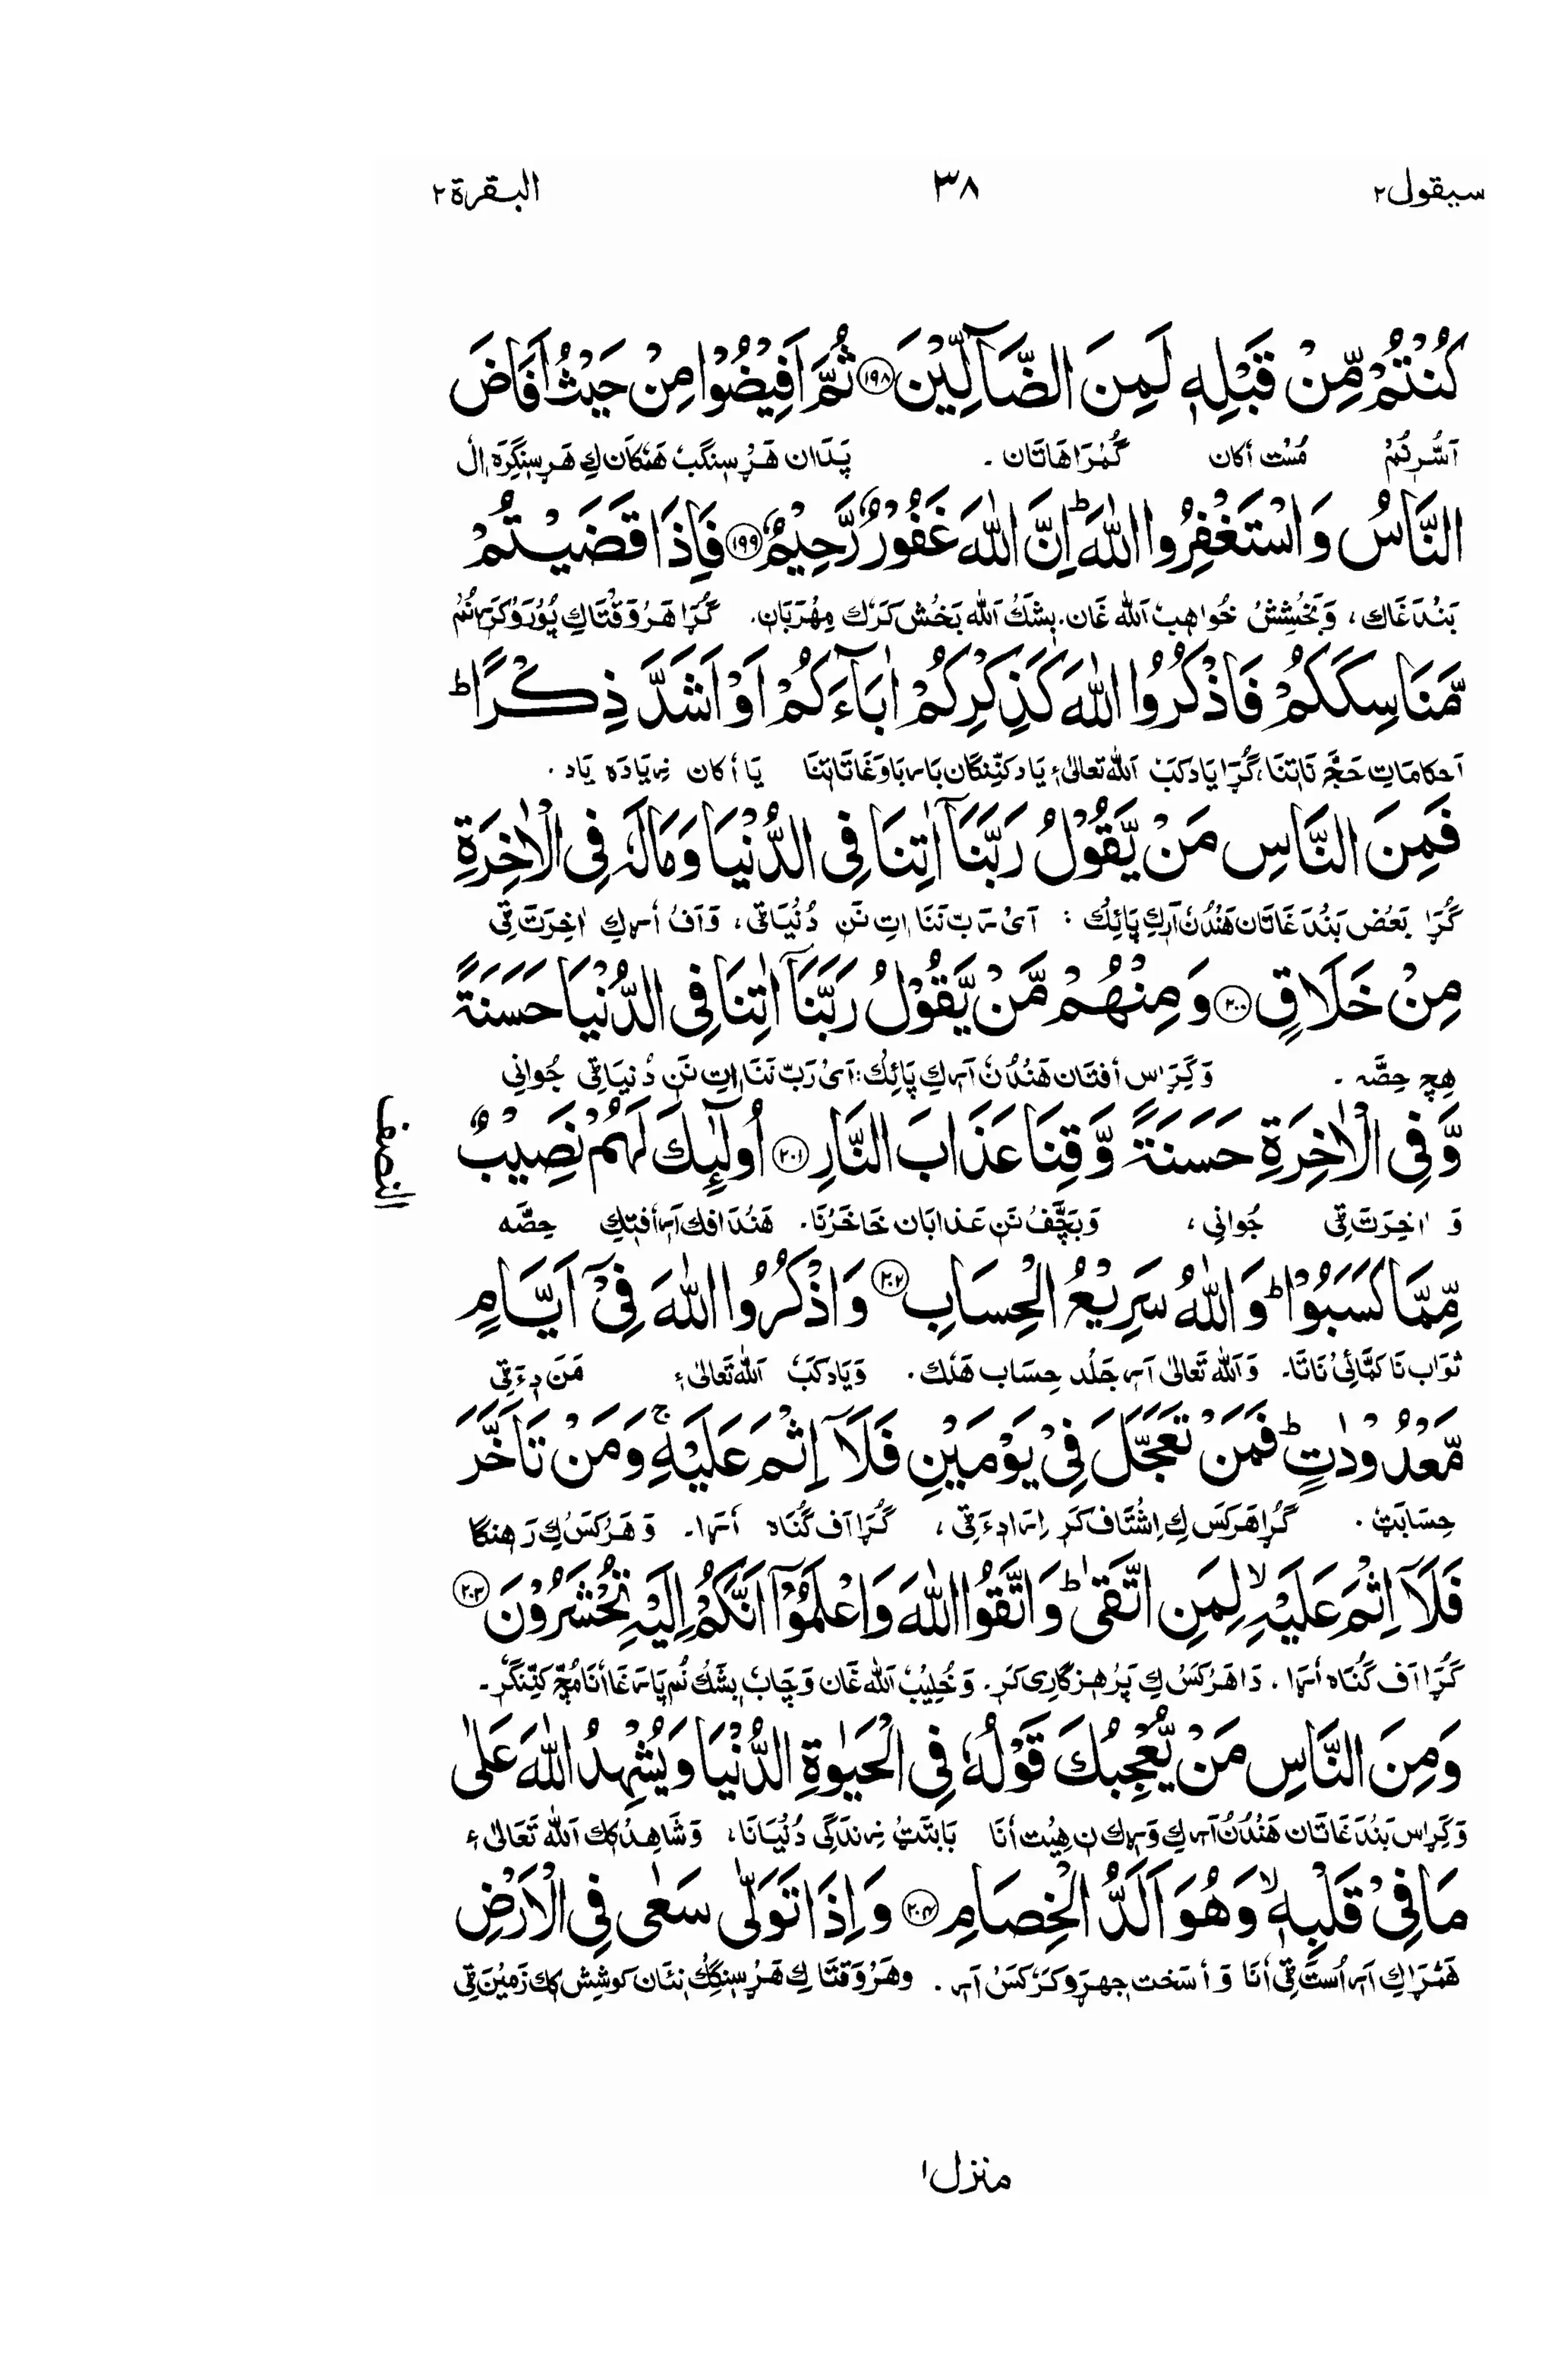 سیقول۲
۳۸
البقرة ۲
كُنْتُمْ مِّنْ قَبْلِهٖ لَمِنَ الضَّآلِّيْنَ ۱۹۸ ثُمَّ اَفِيْضُوْا مِنْ حَيْثُ اَفَاضَ
اَسُّر نُمْ مُست أكان گُمْرَاهَاتَان ۔ پَدَان هَرْ
النَّاسُ وَاسْتَغْفِرُوا اللّٰهَ ؕ اِنَّ اللّٰهَ غَفُوْرٌ رَّحِيْمٌ ۱۹۹ فَاِذَا قَضَيْتُمْ
بَنْدَغَاك، وَبَخْشِشْ خُواهِبْ اَلله غَان. بِشَكْ اَلله بَخْش كَرَك مِهْرَبَان. گُرَا هَرْوَقْتَاكِ پُوْرَوْ
مَّنَاسِكَكُمْ فَاذْكُرُوا اللّٰهَ كَذِكْرِكُمْ اٰبَآءَكُمْ اَوْ اَشَدَّ ذِكْرًا ؕ
اَحكامَاتِ حَجَّ نَا تِنَا، گُرَا يَادكَبْ اَلله تعالىٰءِ يَاد كَنِّنگَان بَاسَ بَاوَغَاتَا تِنَا يَا أكان نِہ يَادَه يَاد.
فَمِنَ النَّاسِ مَنْ يَّقُوْلُ رَبَّنَآ اٰتِنَا فِى الدُّنْيَا وَمَا لَهٗ فِى الْاٰخِرَةِ
گُرَا بَعْض بَنْدَغَاتَان هَنْدُنْ اَرَكِ پَائِك : اَىْ رَبّ نَنَا اِتِ نَن دُنْيَاٹى، وَ اَفْ أرك اٰخِرَت ٹى
مِنْ خَلَاقٍ ۲۰۰ وَمِنْهُمْ مَّنْ يَّقُوْلُ رَبَّنَآ اٰتِنَا فِى الدُّنْيَا حَسَنَةً
هِچ حِصَّہ . وَكِرَاس أفتَان هَنْدُنْ اَركِ پَائِك: اَىْ رَبّ نَنَا اِتِ نَن دُنْيَاٹى جُوانِى
وَّفِى الْاٰخِرَةِ حَسَنَةً وَّقِنَا عَذَابَ النَّارِ ۲۰۱ اُولٰٓئِكَ لَهُمْ نَصِيْبٌ
النصف
وَ اٰخِرَت ٹى جُوانِى، وَبَچِّفْ نَن عَذابَان خَاخَرْنَا. هَنْدَافك اَر أفتِك حِصَّه
مِّمَّا كَسَبُوْا ؕ وَاللّٰهُ سَرِيْعُ الْحِسَابِ ۲۰۲ وَاذْكُرُوا اللّٰهَ فِىْٓ اَيَّامٍ
ثَوَاب نَا كَمَّائِى نَاتَا۔ وَ اَلله تَعَالىٰ اَر جَلْد حِسَاب هَلك. وَيَادكَبْ اَلله تَعَالىٰءِ مَن دِءٹى
مَّعْدُوْدٰتٍ ؕ فَمَنْ تَعَجَّلَ فِىْ يَوْمَيْنِ فَلَآ اِثْمَ عَلَيْهِ ۚ وَمَنْ تَاَخَّرَ
حِسَابَت. گُرَا هَركَس كِ اِشْتَاف كَر اِرَا دِءٹى، گُرَا اَف گُنَاه أرَا۔ وَهَرْكَسْ كِ رَهِنگا
فَلَآ اِثْمَ عَلَيْهِ ۙ لِمَنِ اتَّقٰى ؕ وَاتَّقُوا اللّٰهَ وَاعْلَمُوْٓا اَنَّكُمْ اِلَيْهِ تُحْشَرُوْنَ ۲۰۳
گُرَا اَف گُنَاه أرَا. دَا هَرْكَسْ كِ پَرْهِزگارِى كَر. وَخُلِيْبْ اَلله غَان وَچَابْ بِشَكْ نُم پَارَغَا أنَا مُچّ كَنِّنگر۔
وَمِنَ النَّاسِ مَنْ يُّعْجِبُكَ قَوْلُهٗ فِى الْحَيٰوةِ الدُّنْيَا وَيُشْهِدُ اللّٰهَ عَلٰى
وَكِرَاس بَنْدَغَاتَان هَنْدُنْ اَركِ هِيْت أنَا بَابَتَتْ زِندَگى دُنْيَانَا، وَشَاهِدْ كك اَلله تَعَالىٰءِ
مَا فِىْ قَلْبِهٖ ۙ وَهُوَ اَلَدُّ الْخِصَامِ ۲۰۴ وَاِذَا تَوَلّٰى سَعٰى فِى الْاَرْضِ
هَمْرَاكِ اَر أُسْتَ ٹى أنَا وَ أ سَخت جِهِيْروكَرْكَسْ اَر. وهَرْوَقْتَا كِ هَرْسِنگِك نِئَان كوشِش كك زَمِيْن ٹى
منزل ۱